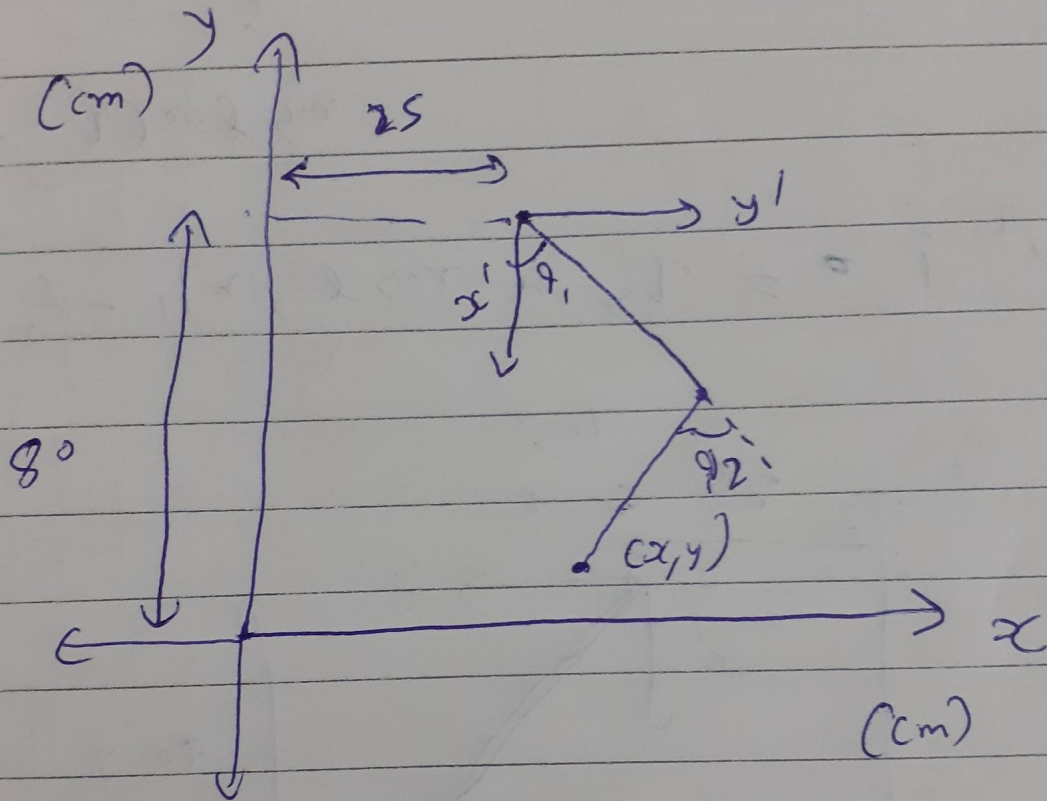 y
(cm)
25
y'
x'
q₁
80
q₂
(x,y)
x
(cm)